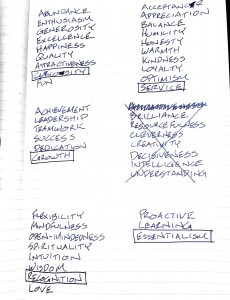 ABUNDANCE
ENTHUSIASM
GENEROSITY
EXCELLENCE
HAPPINESS
QUALITY
ATTRACTIVENESS
CURIOSITY
FUN
ACCEPTANCE
APPRECIATION
BALANCE
HUMILITY
HONESTY
WARMTH
KINDNESS
LOYALTY
OPTIMISM
SERVICE
ACHIEVEMENT
LEADERSHIP
TEAMWORK
SUCCESS
DEDICATION
GROWTH
BRILLIANCE
RESOURCEFULNESS
CLEVERNESS
CREATIVITY
DECISIVENESS
INTELLIGENCE
UNDERSTANDING
FLEXIBILITY
MINDFULNESS
OPEN-MINDEDNESS
SPIRITUALITY
INTUITION
WISDOM
RECOGNITION
LOVE
PROACTIVE
LEARNING
ESSENTIALISM